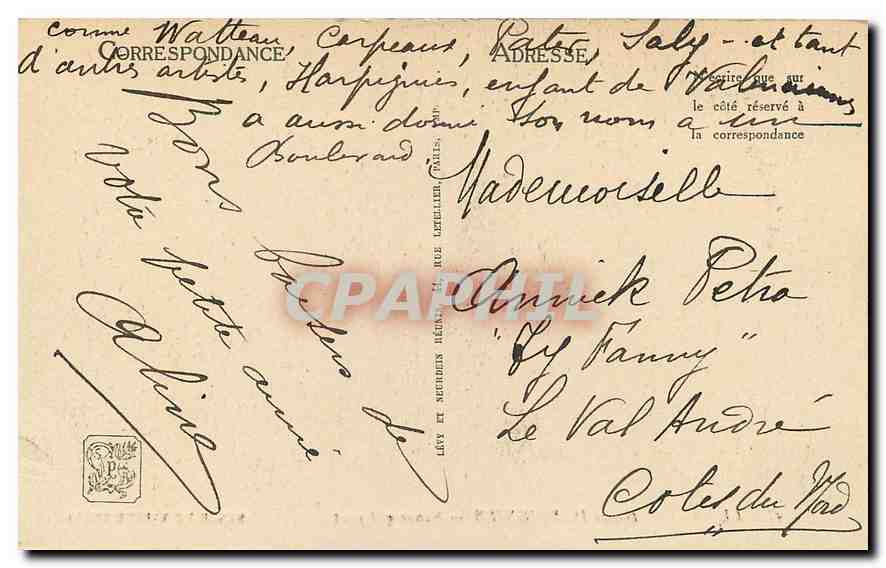 comme Watteau, Carpeaux, Pater, Saly - et tant
CORRESPONDANCE
ADRESSE
d'autres artistes, Harpignies, enfant de Valenciennes
N'écrire que sur
le côté réservé à
la correspondance
a aussi donné son nom à un
Boulevard.
Bons baisers de
votre petite amie
Aline
LÉVY ET NEURDEIN RÉUNIS, 44, RUE LETELLIER, PARIS, IMP.
Mademoiselle
Annick Petra
"Ty Fanny"
Le Val André
Cotes du Nord
CPAPHIL